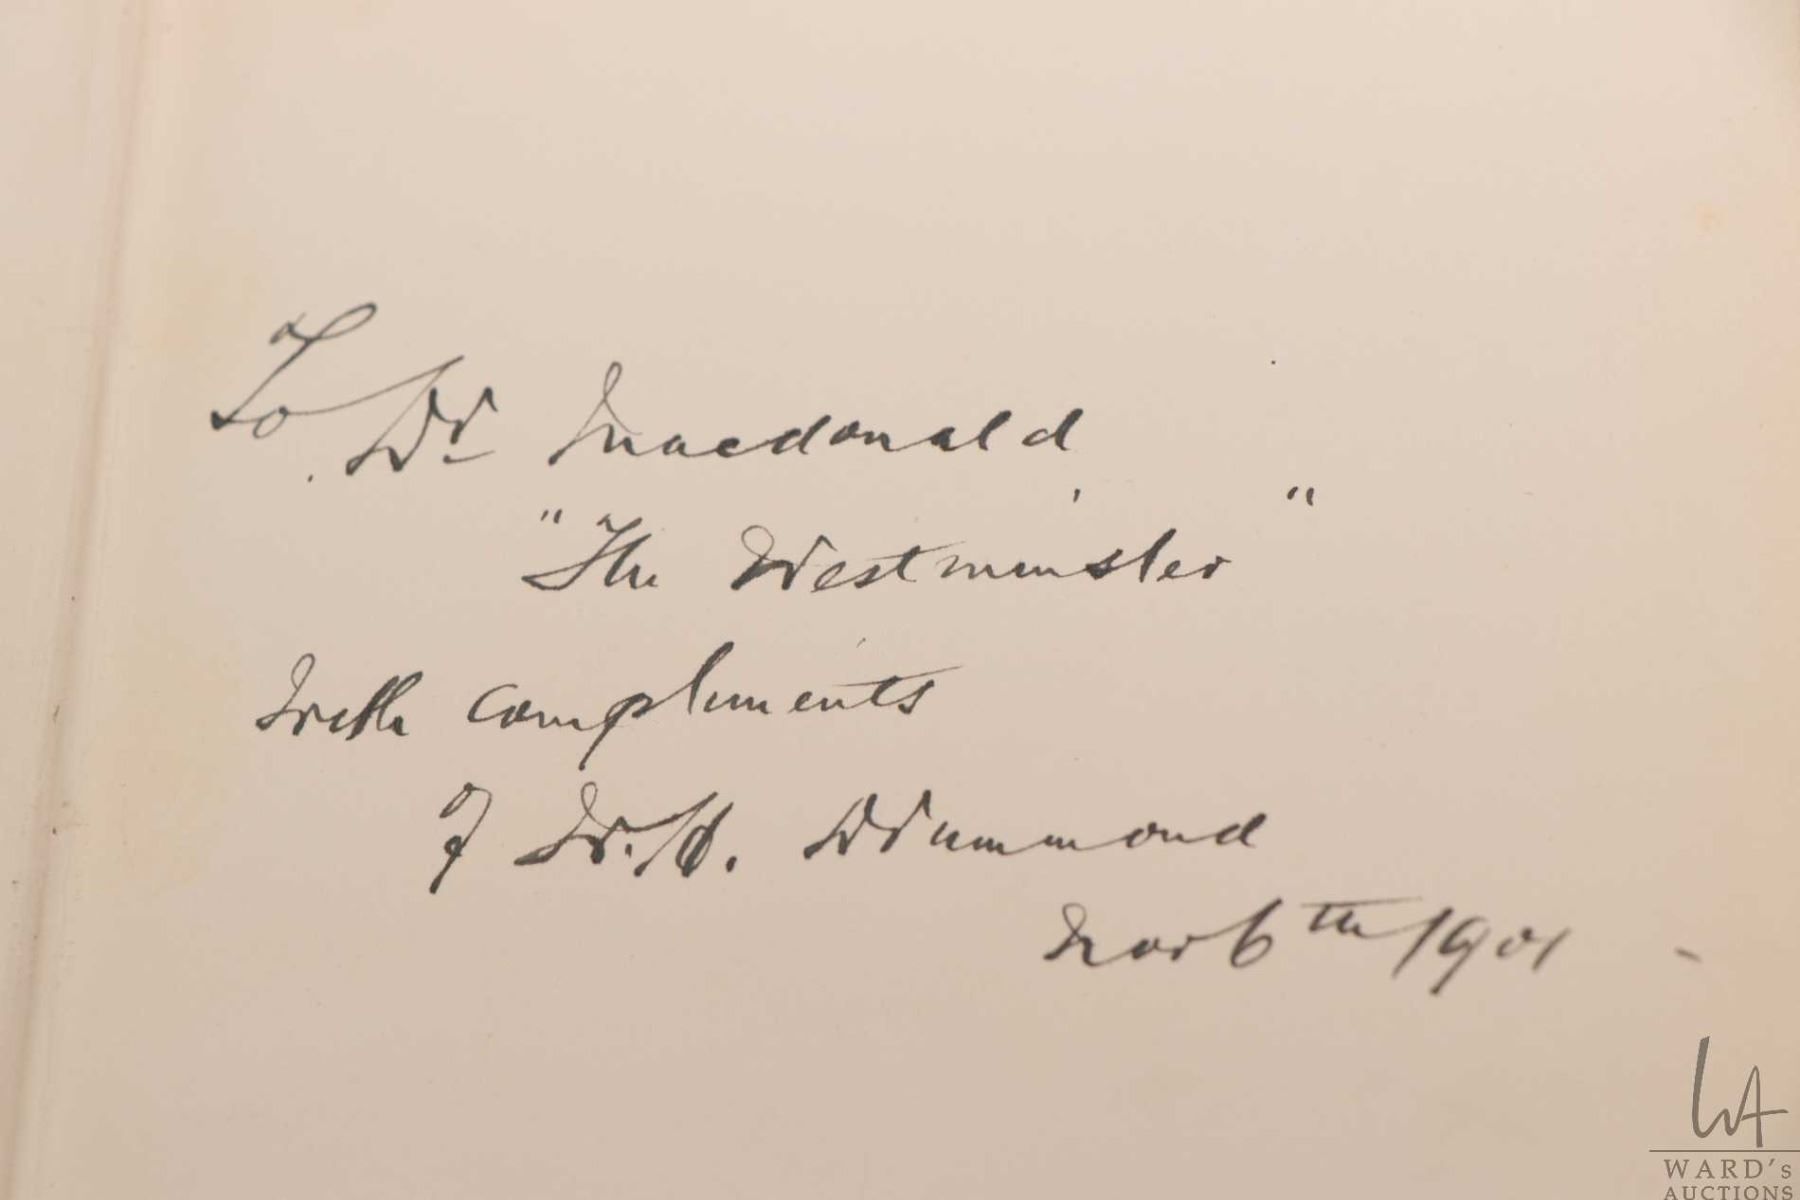 To Dr Macdonald
"The Westminster"
With compliments
of W. H. Drummond
Nov 6th 1901
WARD's
AUCTIONS